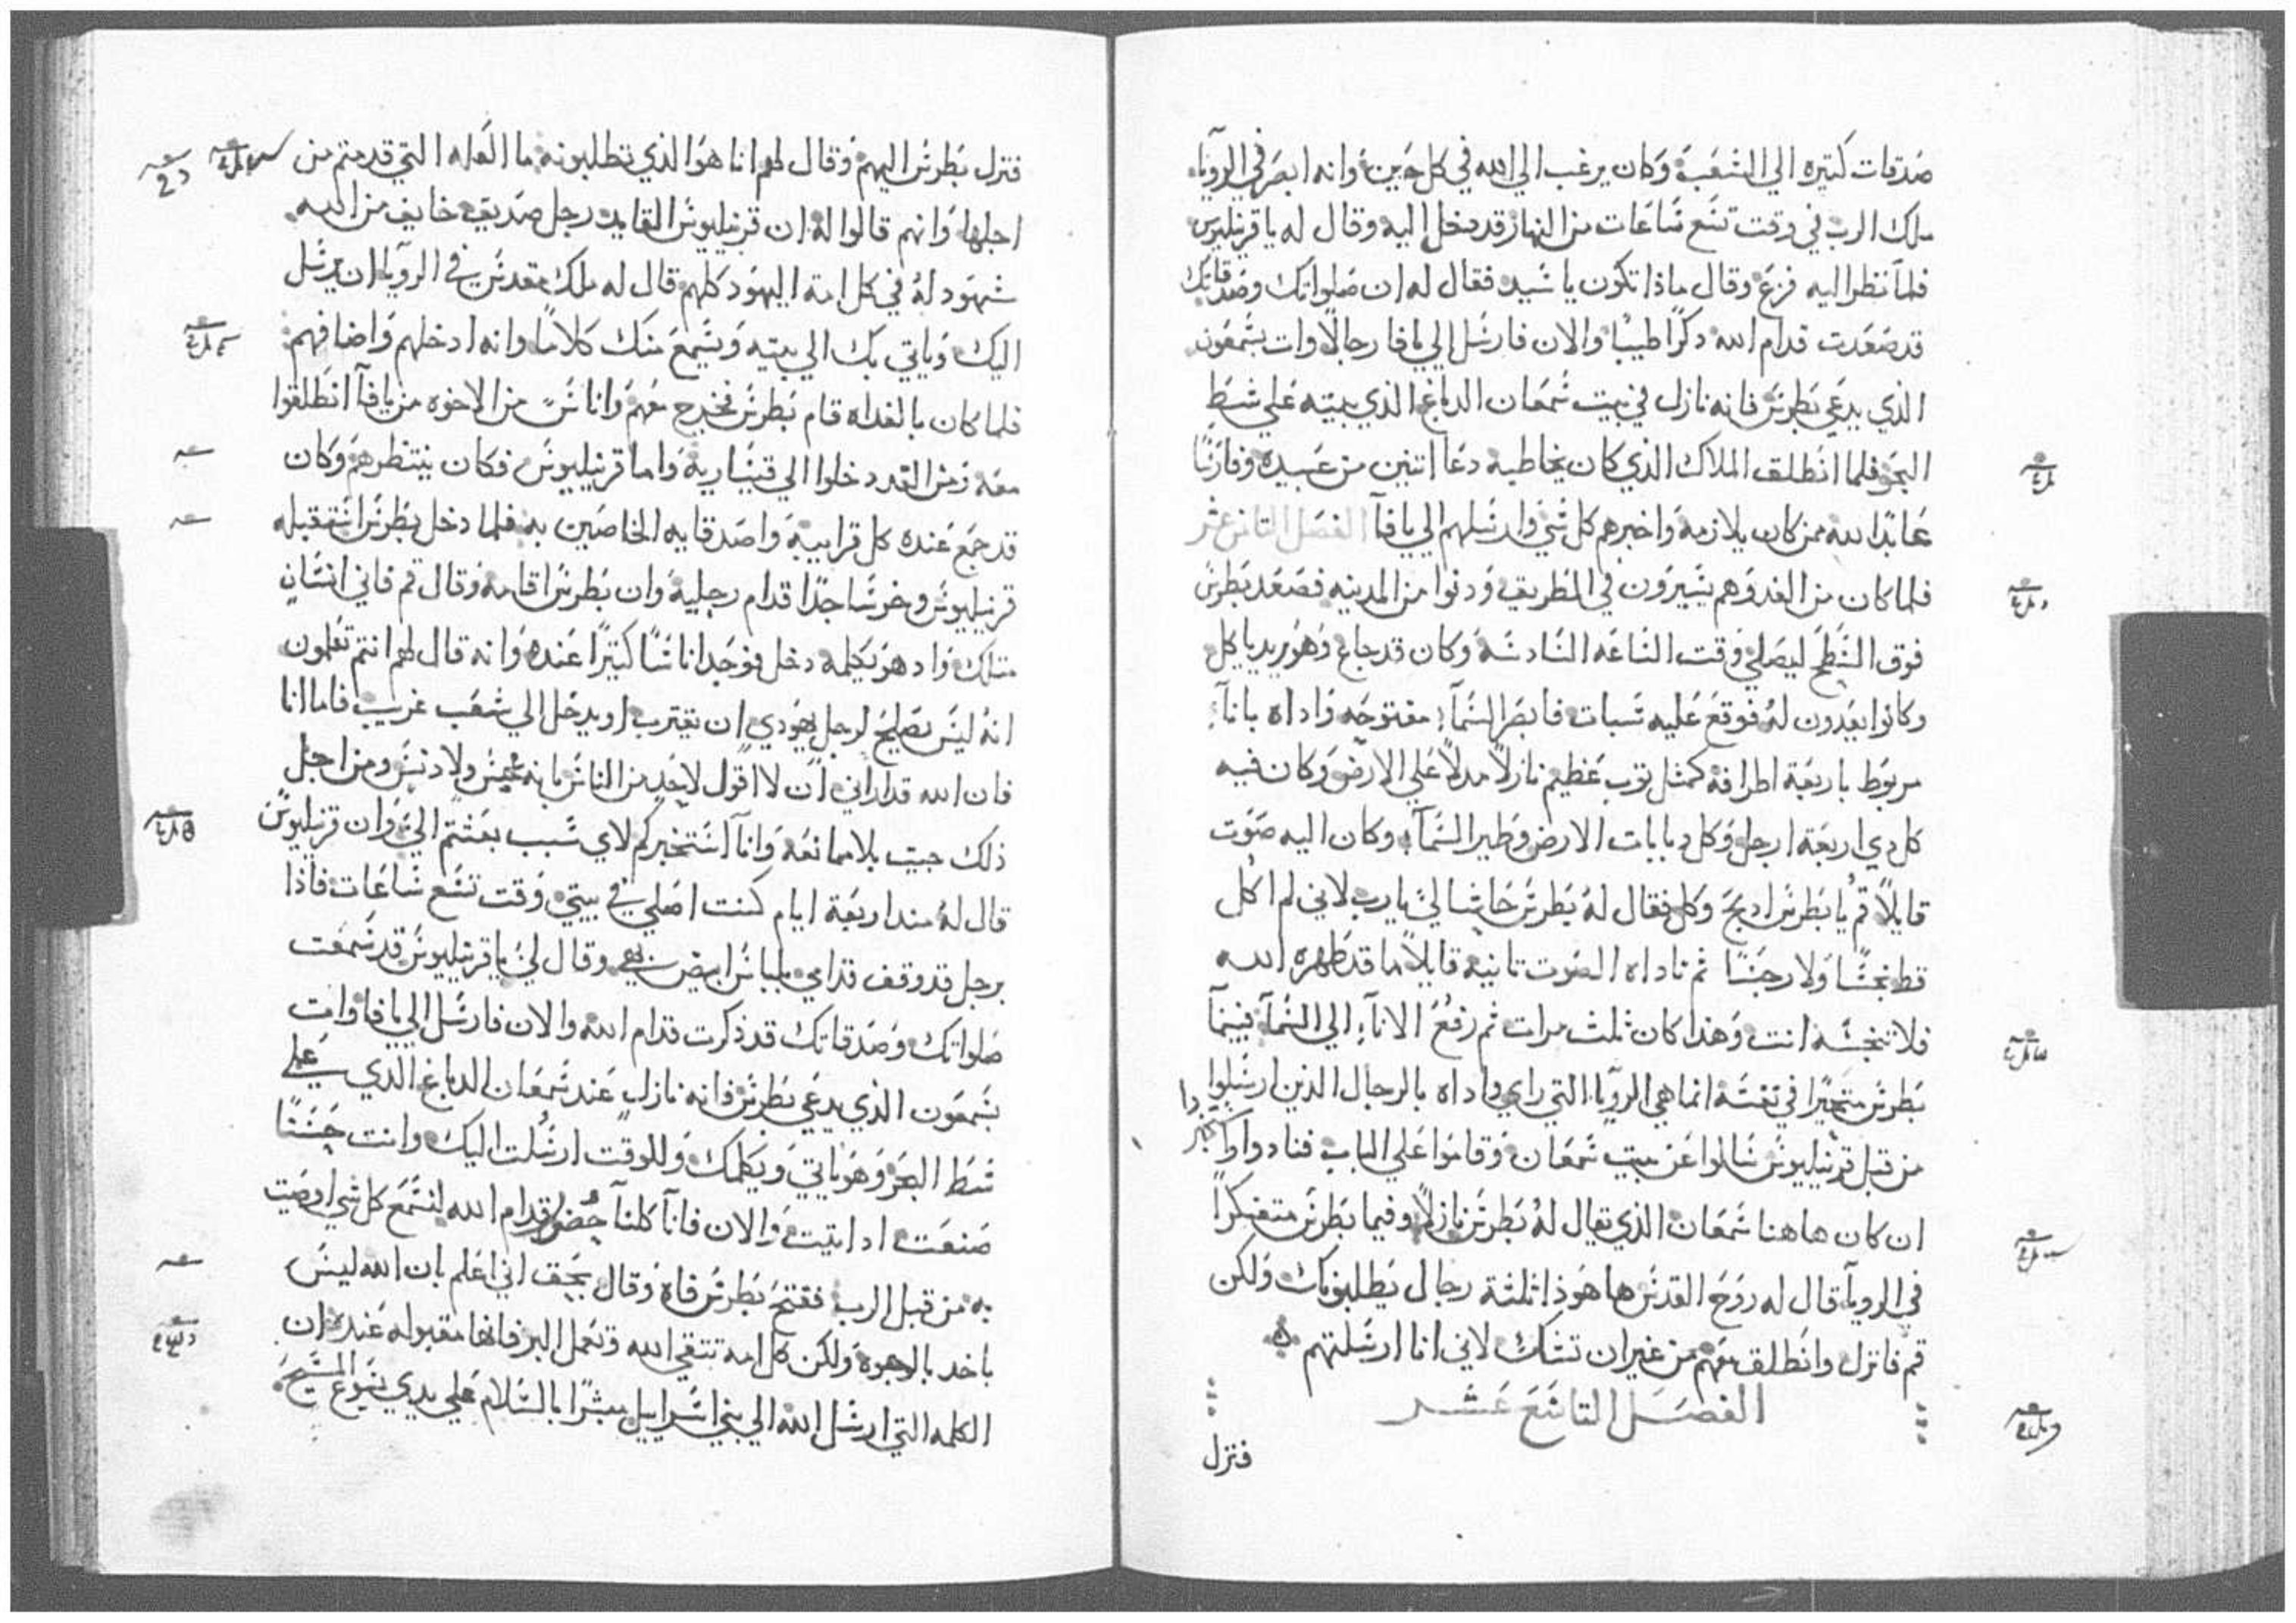 صدقات كتيره الي الشعب وكان يرغب الي الله في كل حين وانه ابصر في الرويا
ملاك الرب في وقت تسع ساعات من النهار قد دخل اليه وقال له يا قرنيليوس
فلما نظر اليه فزع وقال ماذا تكون يا سيد فقال له ان صلواتك وصدقاتك
قد صعدت قدام الله ذكرا طيبا والان فارسل الي يافا رجالا وات بشمعون
الذي يدعي بطرس فانه نازل في بيت شمعان الدباغ الذي بيته علي شط
البحر فلما انطلق الملاك الذي كان يخاطبه دعا اتنين من عبيده وفارسا
عابدا لله ممن كان يلازمه واخبرهم كل شي وارسلهم الي يافا الفصل التامن عشر
فلما كان من الغد وهم يسيرون في الطريق ودنوا من المدينه فصعد بطرس
فوق السطح ليصلي وقت الساعه السادسه وكان قد جاع وهو يريد ياكل
وكانوا يعدون له فوقع عليه سبات فابصر السماء مفتوحه واداه باناء
مربوط باربعة اطرافه كمثل توب عظيم نازلا مدلا علي الارض وكان فيه
كل دي اربعة ارجل وكل دبابات الارض وطير السماء وكان اليه صوت
قايلا قم يا بطرس ادبح وكل فقال له بطرس حاشا لي يا رب لاني لم اكل
قط نجسا ولا رجسا ثم ناداه الصوت تانيه قايلا ما قد طهره الله
فلا تنجسه انت وهذا كان ثلث مرات ثم رفع الاناء الي السماء فبينما
بطرس متحيرا في نفسه انما هي الرويا التي راي واداه بالرجال الذين ارسلوا
من قبل قرنيليوس سالوا عن بيت شمعان وقاموا علي الباب فنادوا واستخبروا
ان كان هاهنا شمعان الذي يقال له بطرس نازلا وفيما بطرس متفكرا
في الرويا قال له روح القدس ها هوذا ثلثة رجال يطلبونك ولكن
قم فانزل وانطلق معهم من غير ان تشك لاني انا ارسلتهم
الفصل التاسع عشر
فنزل
فنزل بطرس اليهم وقال لهم انا هو الذي تطلبونه ما العله التي قدمتم من
اجلها وانهم قالوا له ان قرنيليوس القايد رجل صديق خايف من الله
شهود له في كل امة اليهود كلهم قال له ملاك مقدس في الرويا ان يرسل
اليك وياتي بك الي بيته ويسمع منك كلاما وانه ادخلهم واضافهم
فلما كان بالغداه قام بطرس فخرج معهم واناس من الاخوه من يافا انطلقوا
معه ومن الغد دخلوا الي قيساريه واما قرنيليوس فكان ينتظرهم وكان
قد جمع عنده كل قرابيه واصدقايه الخاصين به فلما دخل بطرس استقبله
قرنيليوس وخر ساجدا قدام رجليه وان بطرس اقامه وقال قم فاني انسان
متلك واد هو يكلمه دخل فوجد اناسا كتيرا عنده وانه قال لهم انتم تعلمون
انه ليس يصلح لرجل يهودي ان يقترب او يدخل الي شعب غريب فاما انا
فان الله قد اراني ان لا اقول لاحد من الناس ما نه نجس ولا دنس ومن اجل
ذلك جيت بلا ممانعه وانا استخبركم لاي سبب بعثتم الي وان قرنيليوس
قال له مند اربعة ايام كنت اصلي في بيتي وقت تسع ساعات فاذا
برجل قد وقف قدامي بلباس ابيض وقال لي يا قرنيليوس قد سمعت
صلواتك وصدقاتك قد ذكرت قدام الله والان فارسل الي يافا وات
بشمعون الذي يدعي بطرس فانه نازل عند شمعان الدباغ الذي علي
شط البحر وهو ياتي ويكلمك وللوقت ارسلت اليك وانت حسنا
صنعت اد اتيت والان فانا كلنا حضور قدام الله لنسمع كل شي اوصيت
به من قبل الرب ففتح بطرس فاه وقال بحق اني اعلم بان الله ليس
ياخد بالوجوه ولكن كل امه تتقي الله وتعمل البر فانها مقبوله عنده ان
الكلمه التي ارسل الله الي بني اسراييل مبشرا بالسلام علي يدي يسوع المسيح